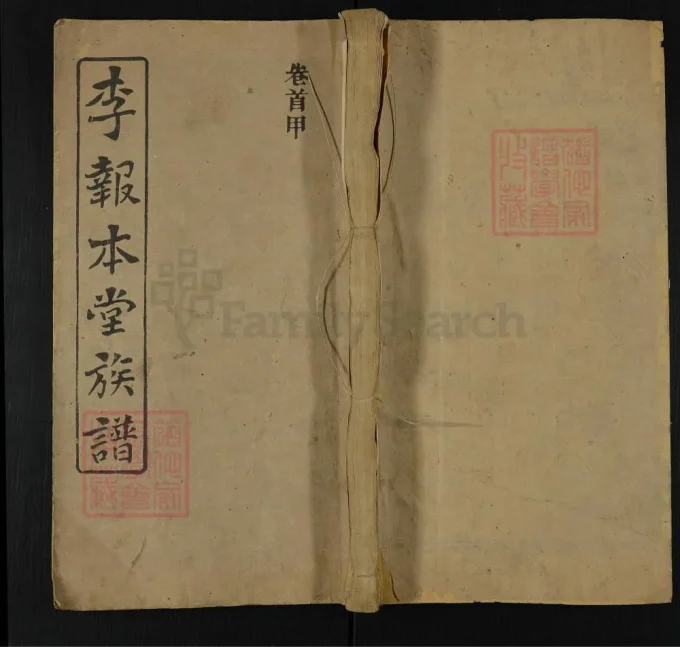 李報本堂族譜
卷首甲
FamilySearch